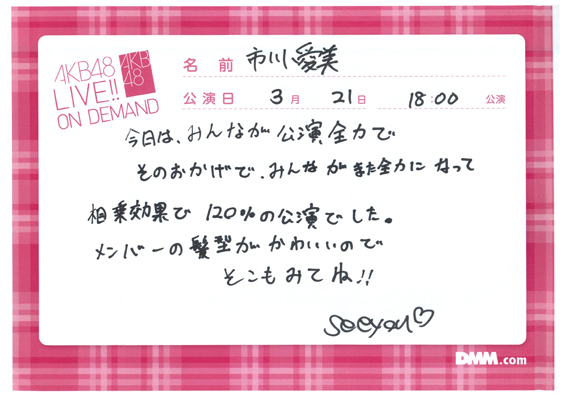 AKB48
LIVE!!
ON DEMAND
AKB
48
名前 市川愛美
公演日 3月 21日 18:00 公演
今日は、みんなが公演全力で
そのおかげで、みんながまた全力になって
相乗効果で120%の公演でした。
メンバーの髪型がかわいいので
そこもみてね!!
DMM.com